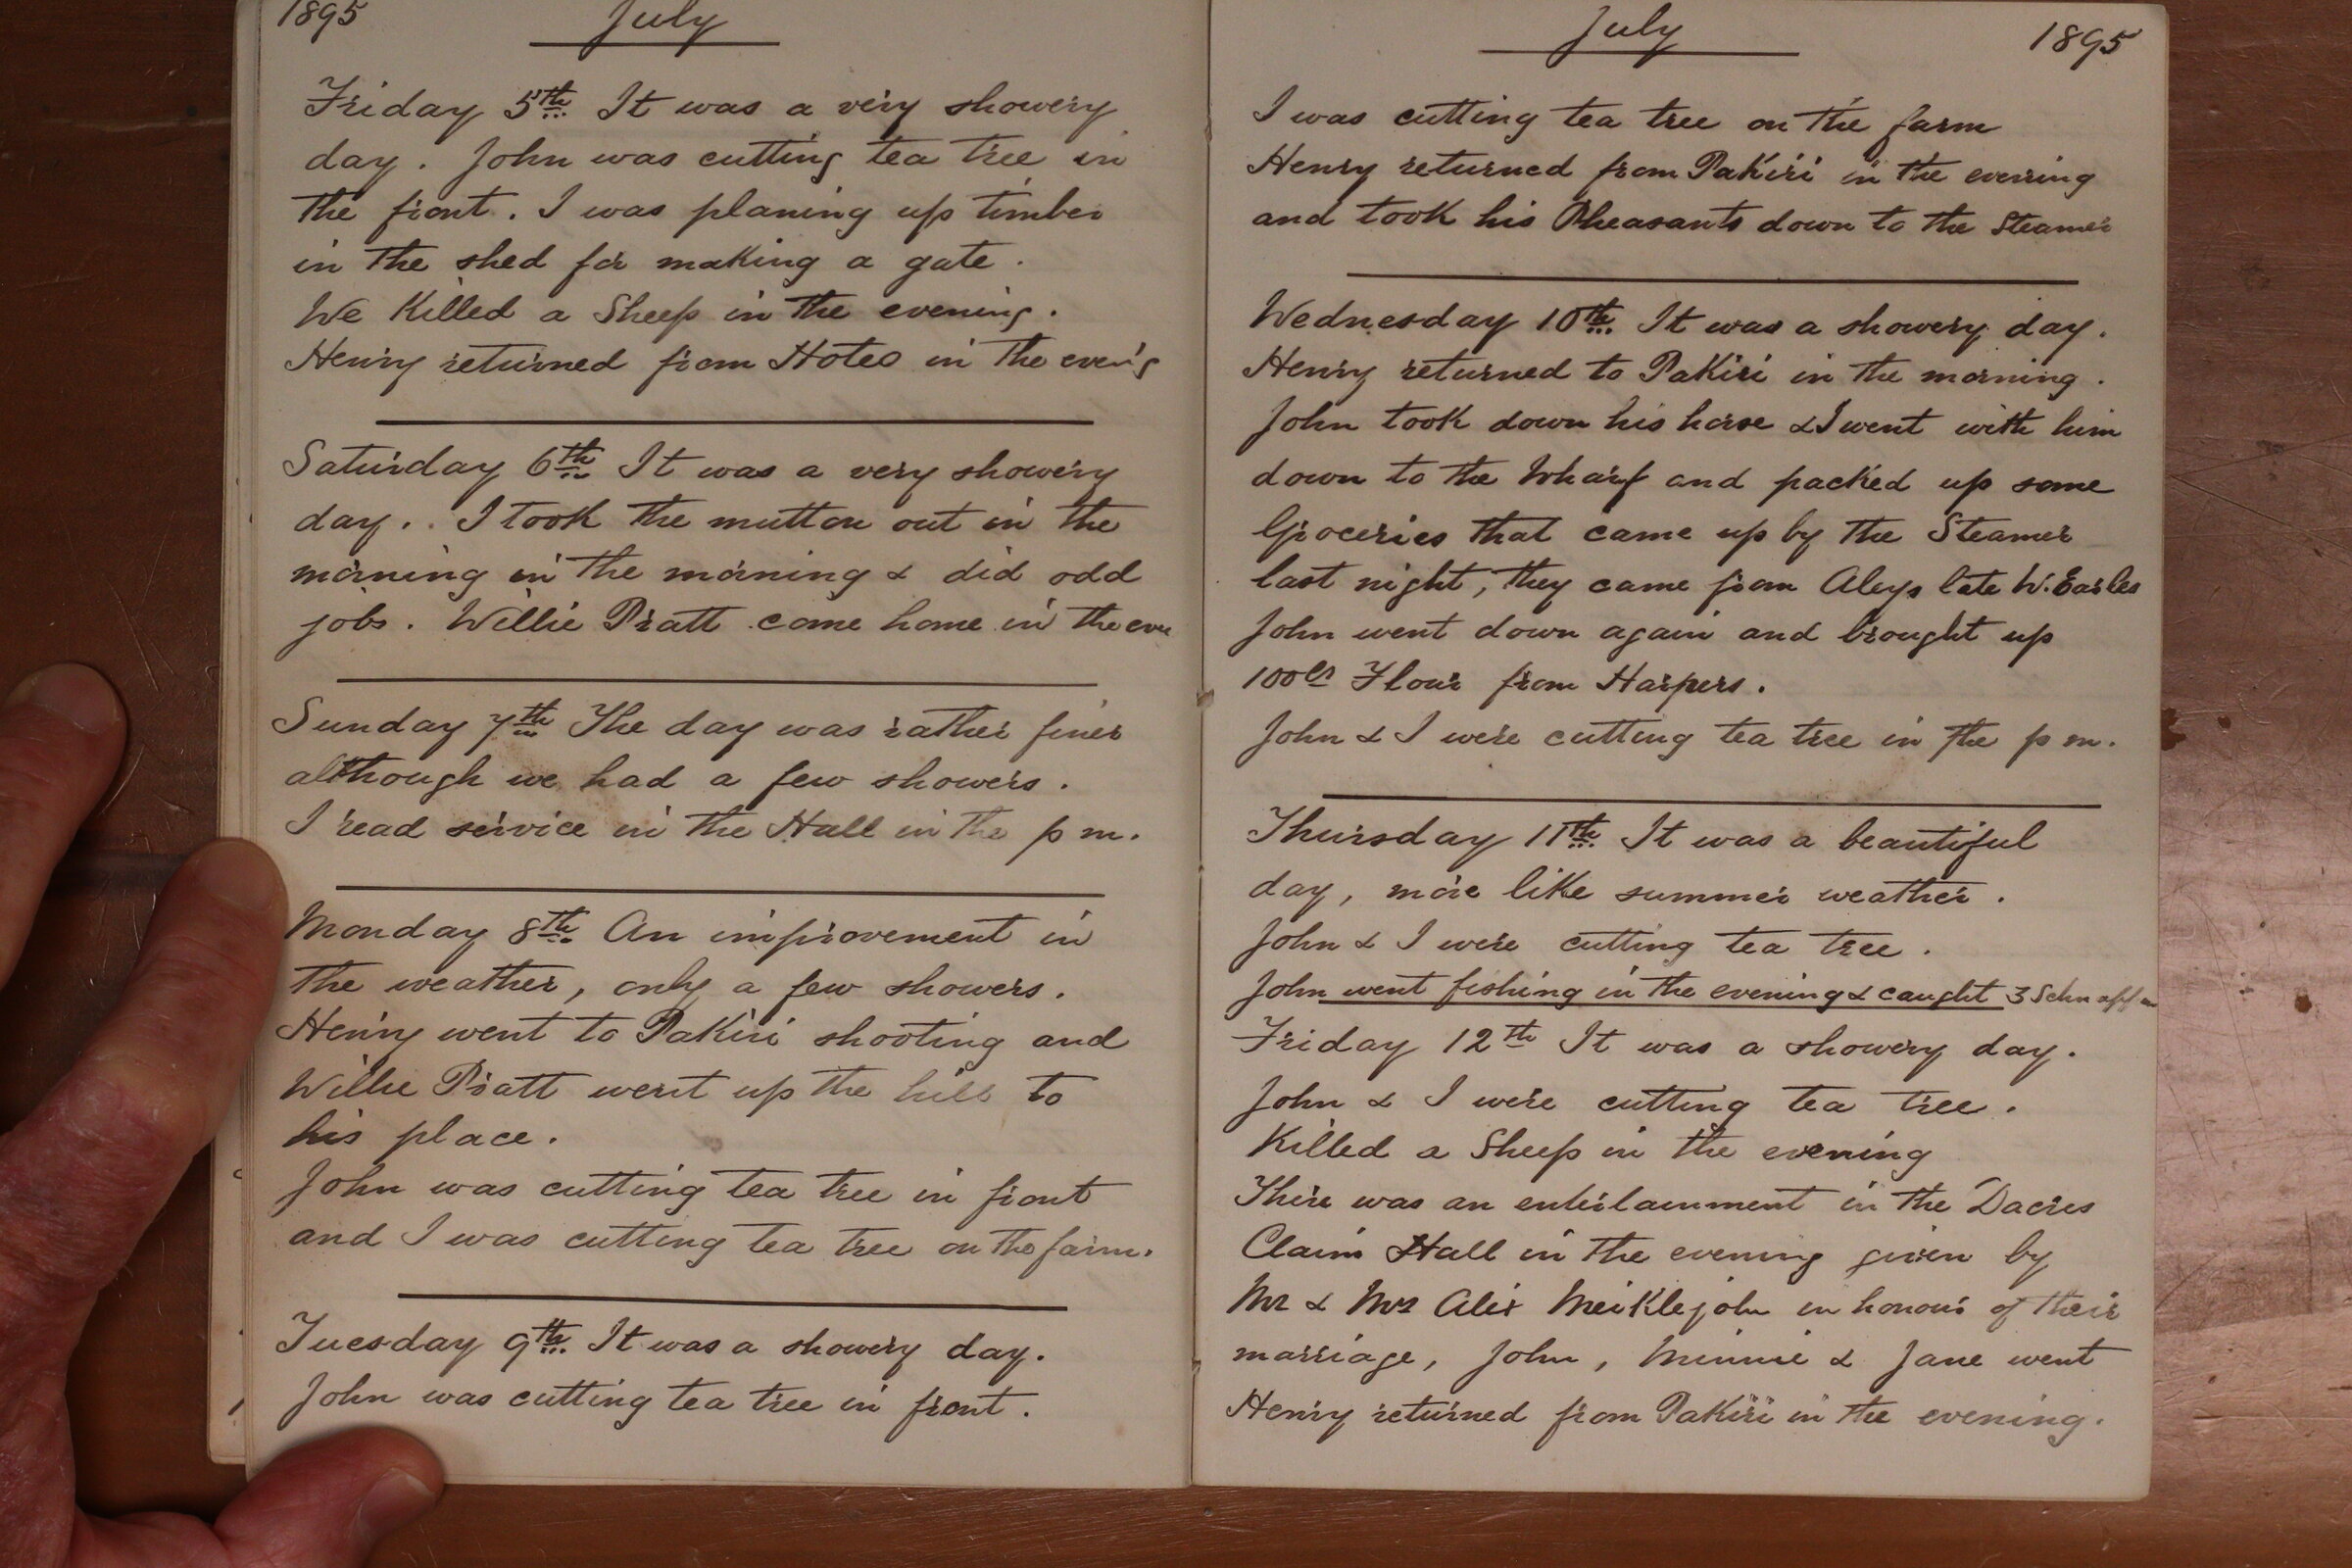 1895 July
Friday 5th It was a very showery
day. John was cutting tea tree in
the front. I was planing up timber
in the shed for making a gate.
We Killed a Sheep in the evening.
Henry returned from Hoteo in the even'g
Saturday 6th It was a very showery
day.. I took the mutton out in the
morning in the morning & did odd
jobs. Willie Pratt come home in the eve
Sunday 7th The day was rather finer
although we had a few showers.
I read service in the Hall in the p m.
Monday 8th An improvement in
the weather, only a few showers.
Henry went to Pakiri shooting and
Willie Pratt went up the hill to
his place.
John was cutting tea tree in front
and I was cutting tea tree on the farm.
Tuesday 9th It was a showery day.
John was cutting tea tree in front.
July 1895
I was cutting tea tree on the farm
Henry returned from Pakiri in the evening
and took his Pheasants down to the Steamer
Wednesday 10th It was a showery day.
Henry returned to Pakiri in the morning.
John took down his horse & I went with him
down to the Wharf and packed up some
Groceries that came up by the Steamer
last night, they came from late W. Earles
John went down again and brought up
100 lb Flour from Harpers.
John & I were cutting tea tree in the p m.
Thursday 11th It was a beautiful
day, more like summer weather.
John & I were cutting tea tree.
John went fishing in the evening & caught 3 Schnapper
Friday 12th It was a showery day.
John & I were cutting tea tree.
Killed a Sheep in the evening
There was an entertainment in the Dacres
Claim Hall in the evening given by
Mr & Mrs Alex Meiklejohn in honour of their
marriage, John, Minnie & Jane went
Henry returned from Pakiri in the evening.